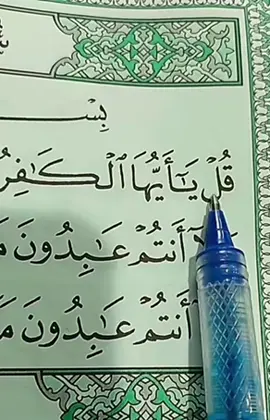 بِسْ
قُلْ يَـٰٓأَيُّهَا ٱلْكَـٰفِرُ
أَنتُمْ عَـٰبِدُونَ مَ
أَنتُمْ عَـٰبِدُونَ مَ